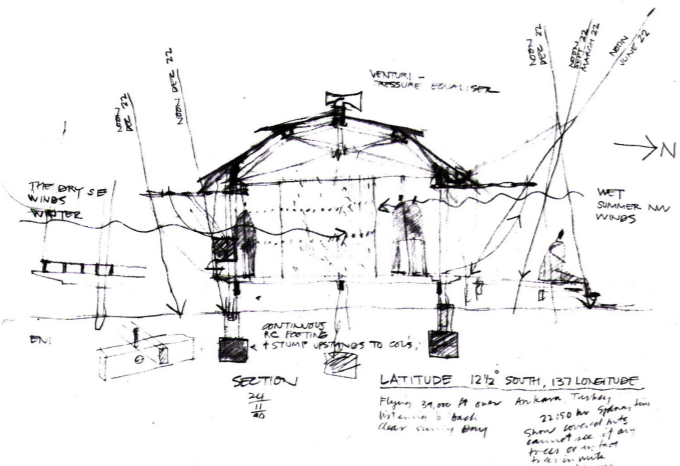 NOON
DEC 22
NOON DEC 22
VENTURI -
PRESSURE EQUALISER
NOON
DEC 22
NOON
SEPT 22
MARCH 22
NOON
JUNE 22
N
THE DRY SE
WINDS
WINTER
WET
SUMMER NW
WINDS
CONTINUOUS
RC FOOTING
+ STUMP UPSTANDS TO COLS,
SECTION
24
11
80
LATITUDE 12½° SOUTH, 137 LONGITUDE
Flying 39,000 ft over Ankara, Turkey,
listening to Bach
clear sunny Day
22:50 hr Sydney time
Snow covered
cannot see if any
trees or in fact
trees in